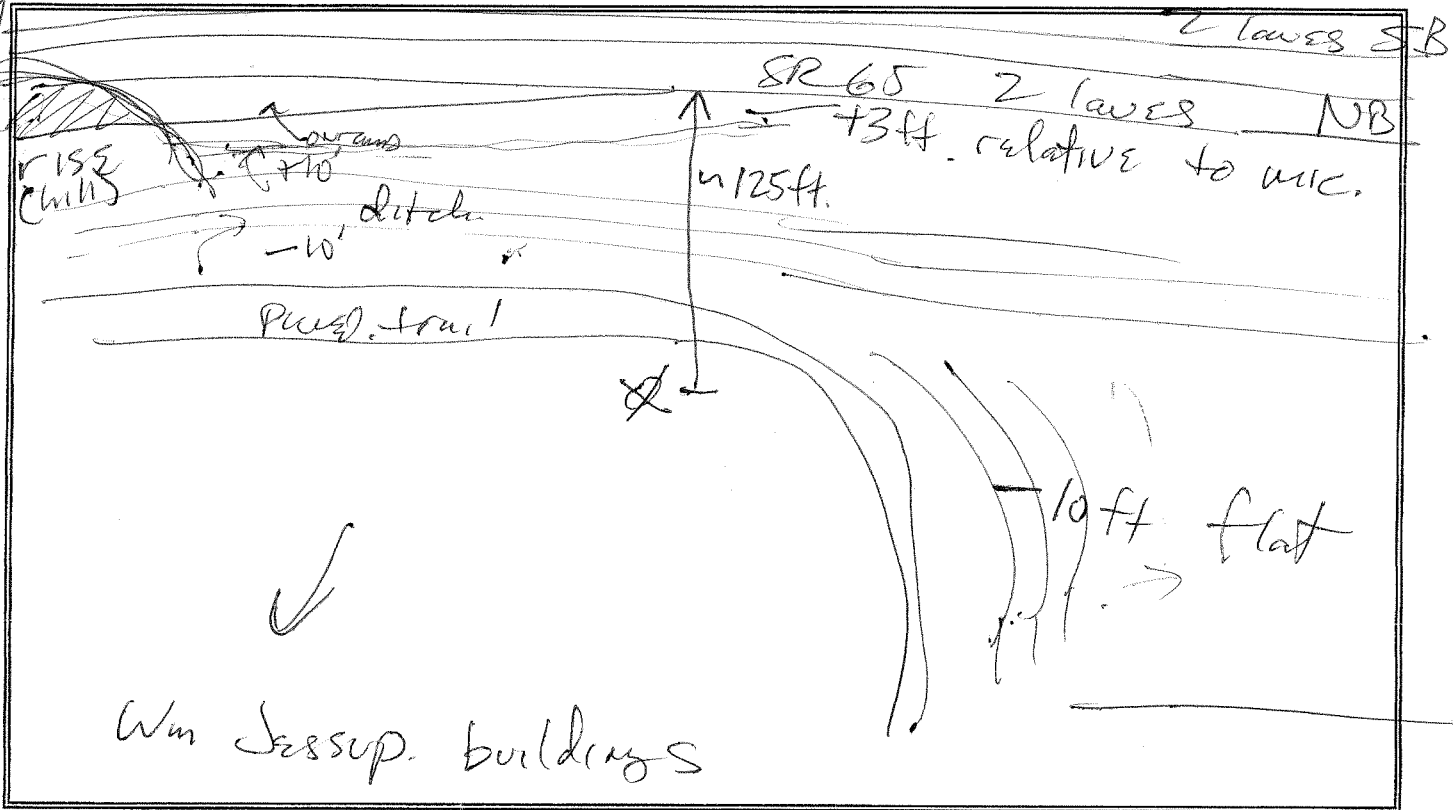 2 lanes SB
SR 65 2 lanes NB
+3ft. relative to mic.
rise
(hill)
+10'
~125ft.
ditch
-10'
Paved. trail
10 ft flat
Wm Jessup. buildings